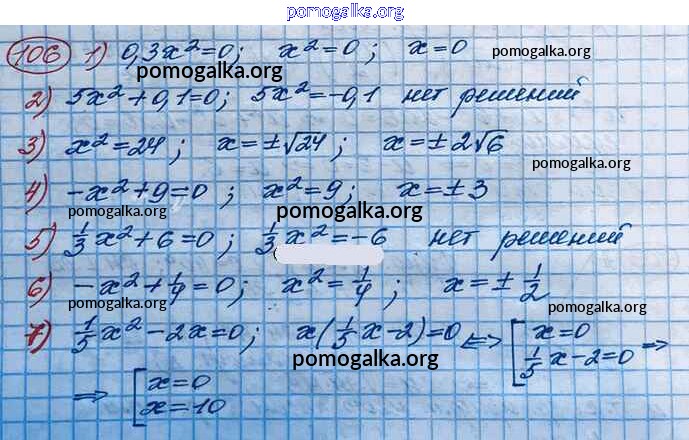 pomogalka.org
106 1) 0,3x²=0; x²=0; x=0 pomogalka.org
pomogalka.org
2) 5x²+0,1=0; 5x²=-0,1 нет решений
3) x²=24; x=±√24; x=±2√6
pomogalka.org
4) -x²+9=0; x²=9; x=±3
pomogalka.org
5) 1/3 x²+6=0; 1/3 x²=-6 нет решений
6) -x²+1/4=0; x²=1/4; x=±1/2
pomogalka.org pomogalka.org
7) 1/5 x²-2x=0; x(1/5 x-2)=0 <=> [ x=0
1/5 x-2=0 =>
pomogalka.org
=> [ x=0
x=10